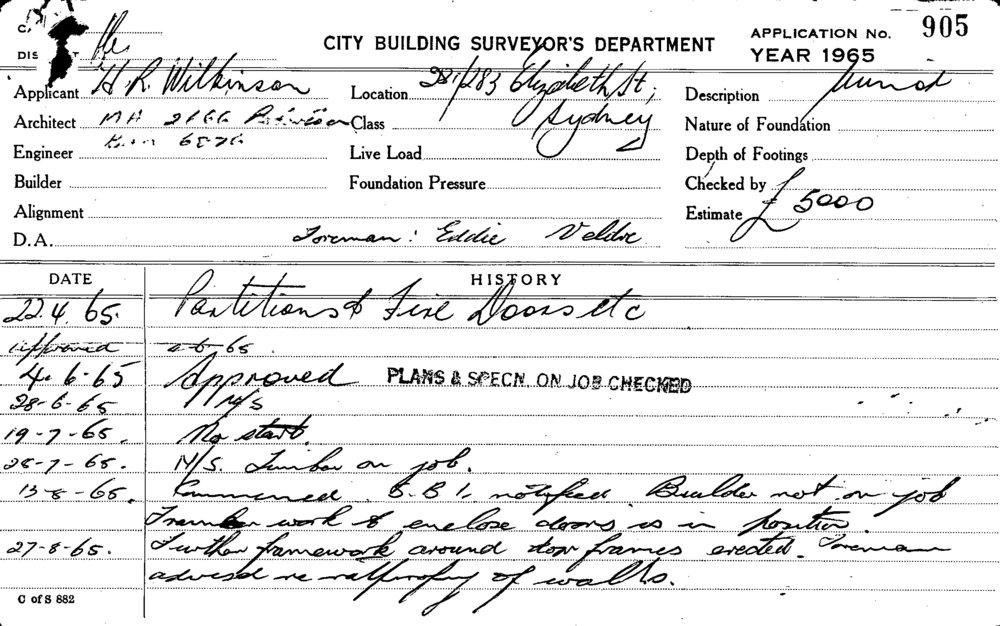 CITY BUILDING SURVEYOR'S DEPARTMENT
APPLICATION No. 905
YEAR 1965
Applicant H. R. Wilkinson
Location 281/283 Elizabeth St, Sydney
Description
Architect MA 2666
Class
Nature of Foundation
Engineer
Live Load
Depth of Footings
Builder
Foundation Pressure
Checked by
Alignment
Estimate £ 5000
D.A. Foreman: Eddie
DATE HISTORY
22.4.65. Partitions & Fire Doors etc
approved 4-6-65
4.6-65 Approved PLANS & SPECN. ON JOB CHECKED
28-6-65 N/S
19-7-65. No start.
28-7-65. N/S. Timber on job.
13-8-65. Commenced. notified Builder not on job
work to enclose doors is in position.
27-8-65. Further framework around door frames erected. Foreman
advised re ratproofing of walls.
C of S 882